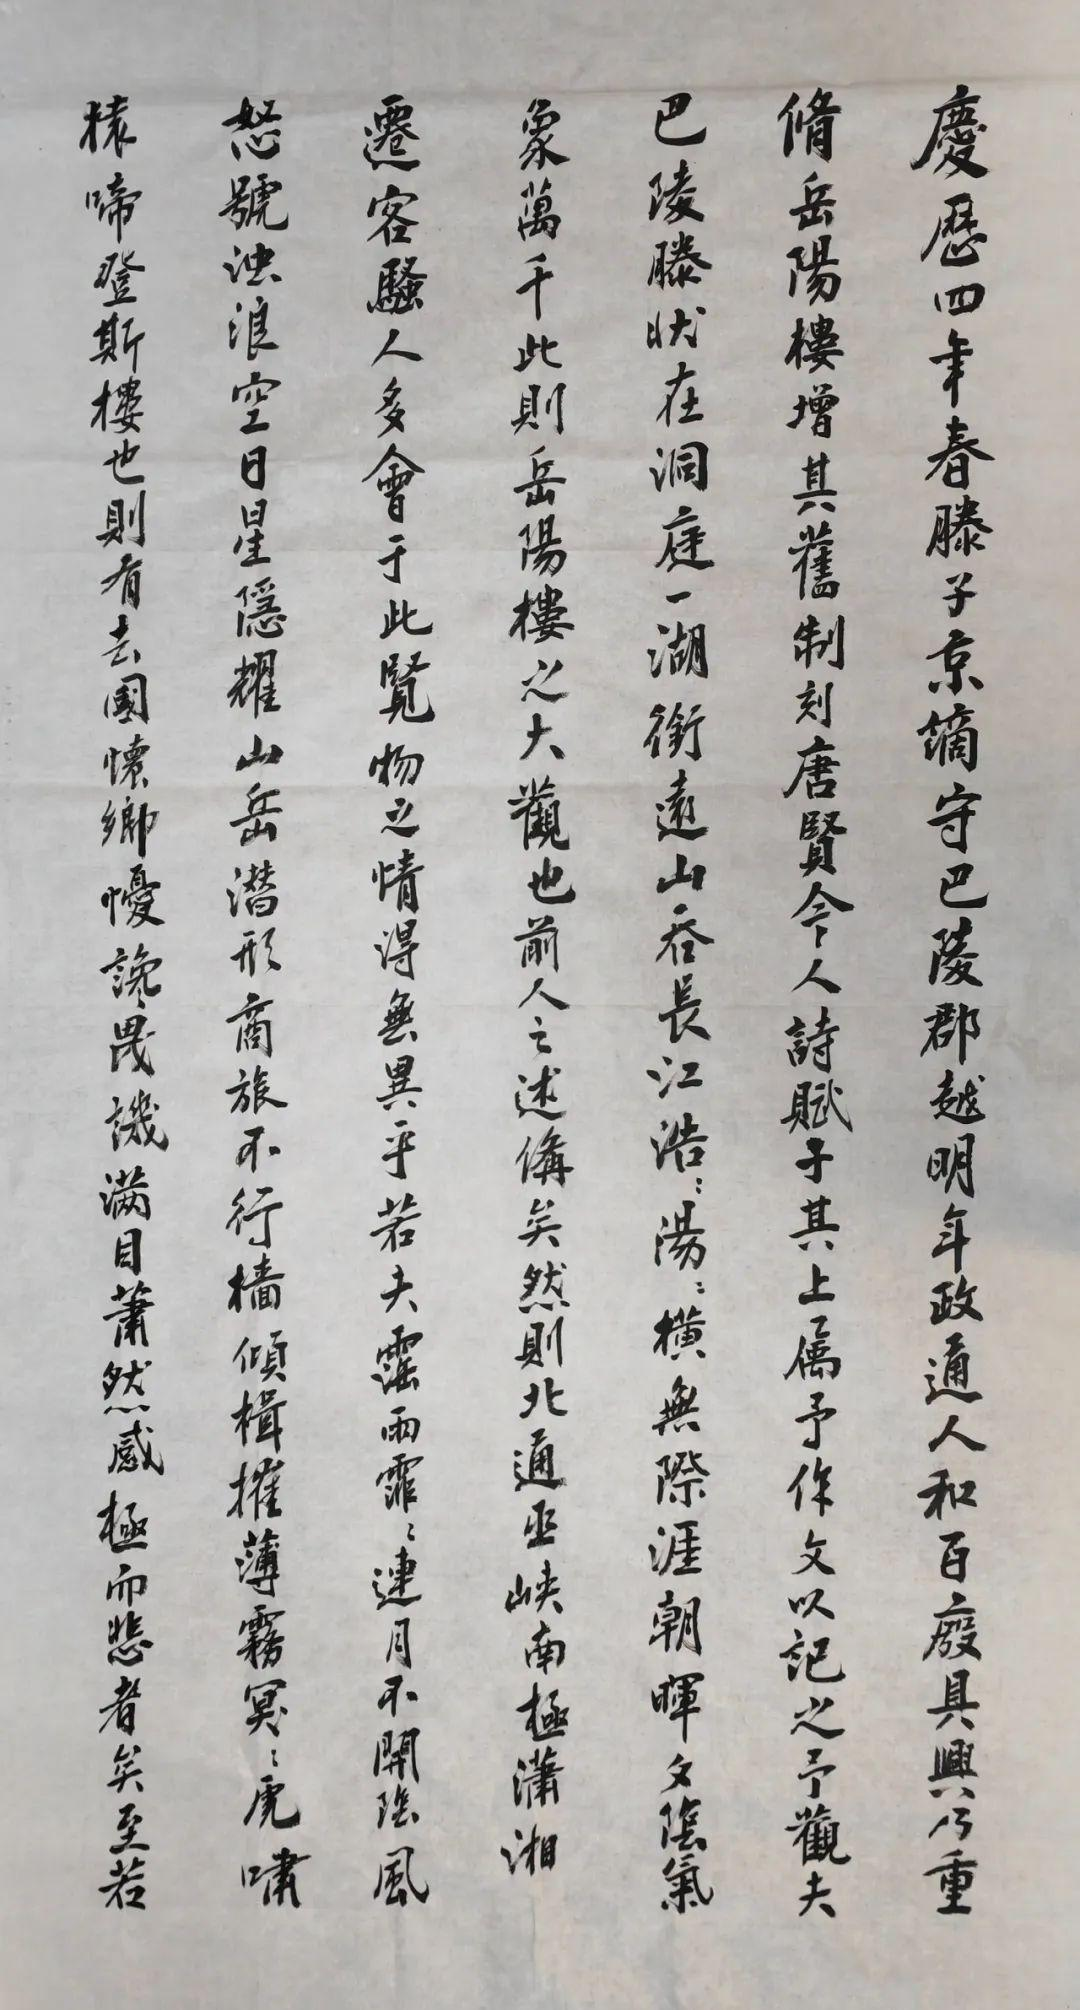 慶歷四年春滕子京謫守巴陵郡越明年政通人和百廢具興乃重
脩岳陽樓增其舊制刻唐賢今人詩賦于其上属予作文以記之予觀夫
巴陵勝狀在洞庭一湖銜遠山吞長江浩:湯:橫無際涯朝暉夕陰氣
象萬千此則岳陽樓之大觀也前人之述備矣然則北通巫峽南極瀟湘
遷客騷人多會于此覽物之情得無異乎若夫霪雨霏:連月不開陰風
怒號浊浪空日星隱耀山岳潜形商旅不行檣傾楫摧薄霧冥:虎嘯
猿啼登斯樓也則有去國懷鄉憂讒畏譏滿目蕭然感極而悲者矣至若